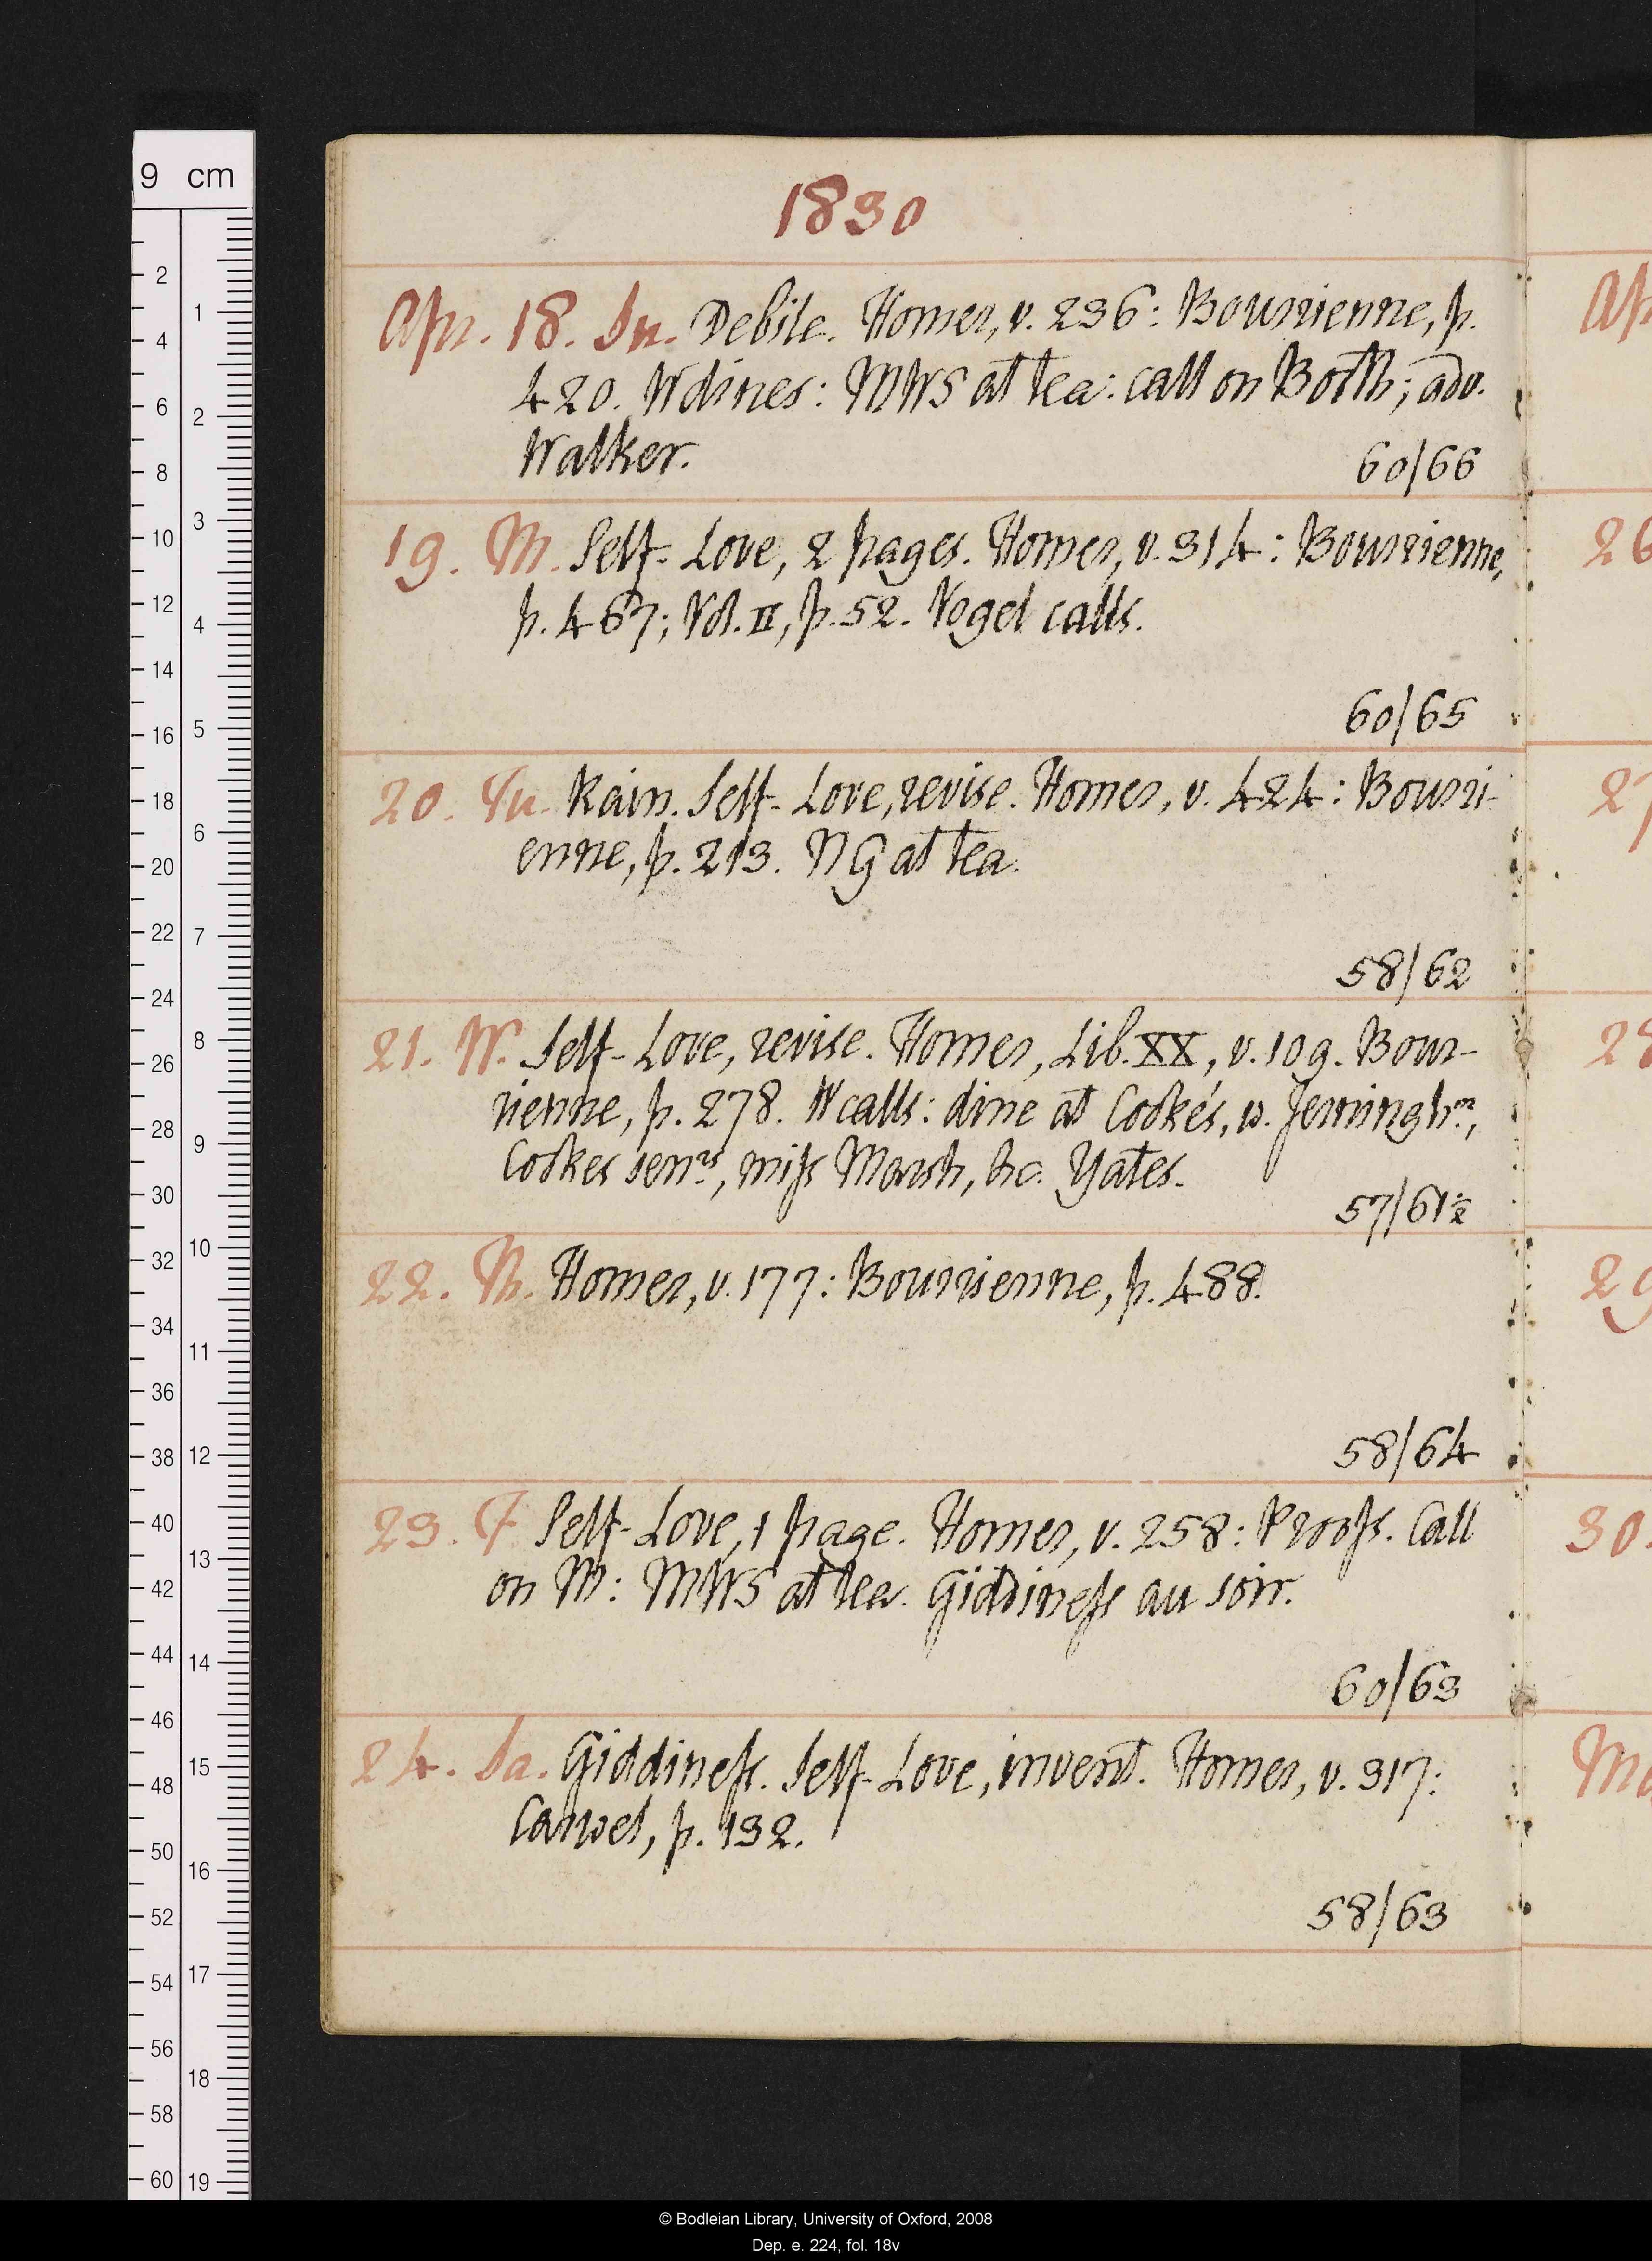 1830
Apr. 18. Su. Debile. Homer, v. 236: Bourrienne, p.
420. W dines: MWS at tea: call on Booth; adv.
Walker.
60/66
19. M. Self-Love, 2 pages. Homer, v. 314: Bourrienne,
p. 467; Vol. II, p. 52. Vogel calls.
60/65
20. Tu. Rain. Self-Love, revise. Homer, v. 424: Bourri-
enne, p. 213. NG at tea.
58/62
21. W. Self-Love, revise. Homer, Lib. XX, v. 109. Bour-
rienne, p. 278. W calls: dine at Cooke's, w. Jerninghm,
Cookes senrs, miss Marsh, &c. Yates.
57/61½
22. Th. Homer, v. 177: Bourrienne, p. 488.
58/64
23. F. Self-Love, 1 page. Homer, v. 258: Proofs. Call
on M: MWS at tea. Giddiness au soir.
60/63
24. Sa. Giddiness. Self-Love, invent. Homer, v. 317:
Carwel, p. 132.
58/63
Ap
26
27
28
29
30.
Ma
9 cm
2
4
6
8
10
12
14
16
18
20
22
24
26
28
30
32
34
36
38
40
42
44
46
48
50
52
54
56
58
60
1
2
3
4
5
6
7
8
9
10
11
12
13
14
15
16
17
18
19
© Bodleian Library, University of Oxford, 2008
Dep. e. 224, fol. 18v